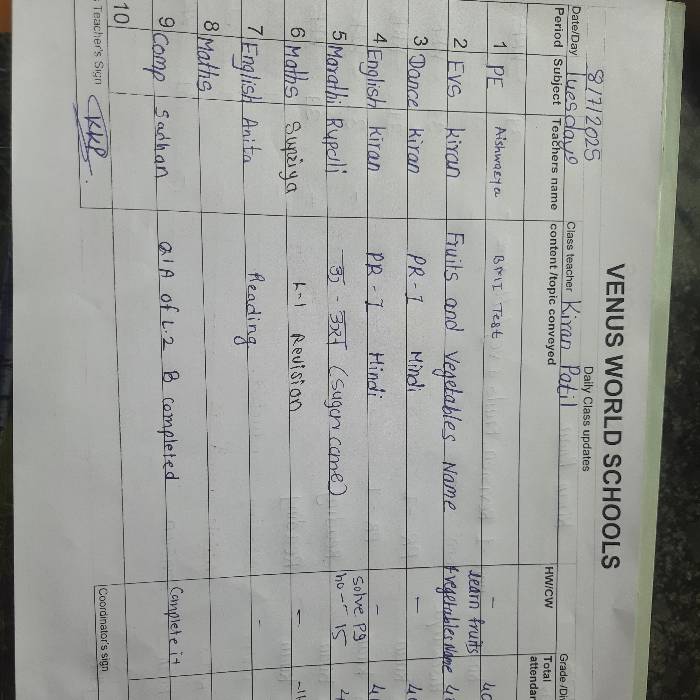 VENUS WORLD SCHOOLS
Daily Class updates
8/7/2025
Date/Day Tuesday Class teacher Kiran Patil Grade /Di
Period Subject Teachers name content /topic conveyed HW/CW Total attenda
1 PE Aishwarya BMI Test -
2 EVS kiran Fruits and vegetables Name learn fruits
+vegetables Name
3 Dance kiran PR-1 Hindi -
4 English kiran PR-1 Hindi -
5 Marathi Rupali (sugar cane) Solve pg
no - 15
6 Maths Supriya L-1 Revision -
7 English Anita Reading -
8 Maths
9 Comp Sadhan Q1A of L.2 B completed Complete it
10
Teacher's Sign Coordinator's sign